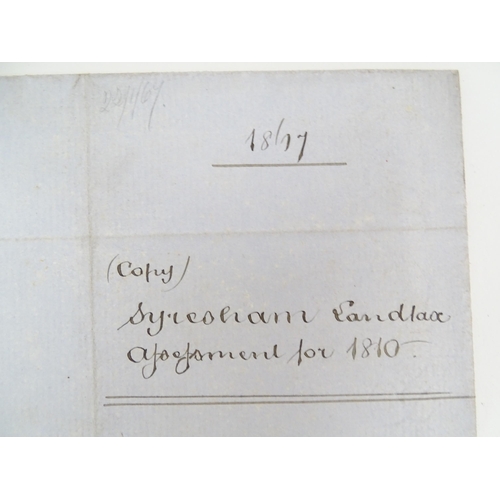 1817
(Copy)
Syresham Landtax
Assessment for 1810